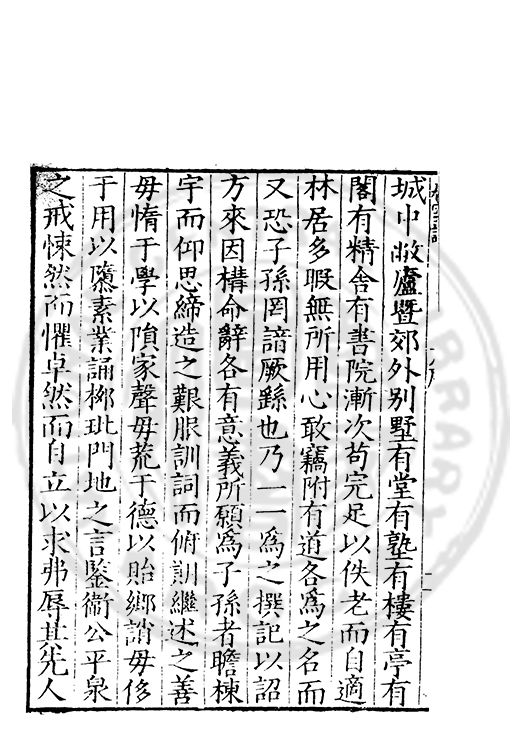 城中敝廬暨郊外別墅有堂有塾有樓有亭有
閣有精舍有書院漸次苟完足以佚老而自適
林居多暇無所用心敢竊附有道各爲之名而
又恐子孫罔諳厥繇也乃一一爲之撰記以詔
方來因構命辭各有意義所願爲子孫者瞻棟
宇而仰思締造之艱服訓詞而俯勛繼述之善
毋惰于學以隕家聲毋荒于德以貽鄉誚毋侈
于用以隳素業誦栁玭門地之言鑒衞公平泉
之戒悚然而懼卓然而自立以求弗辱其先人